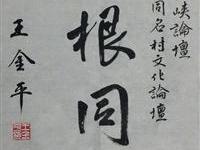 峽論壇
同名村文化論壇
根同
王金平